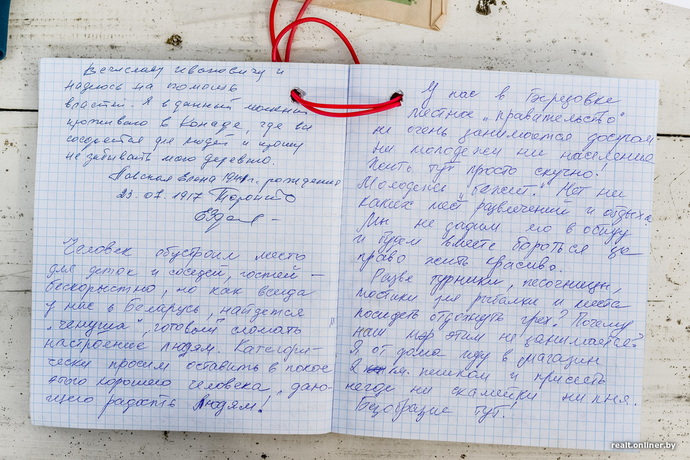 Вечиславу Ивановичу и
надеюсь на помощь
властей. Я в данный момент
проживаю в Канаде, где вы
для людей и прошу
не забывать мою деревню.
Елена 1941г. рождения
23.07.1917 Торонто
Человек обустроил место
для деток и соседей, гостей –
бескорыстно, но как всегда
у нас в Беларусь, найдется
"чинуша", готовый сломать
настроение людям. Категори-
чески просим оставить в покое
этого хорошего человека, даю-
щего радость людям!
У нас в Березовке
местное „правительство"
не очень занимается досугом
ни молодежи ни населения
Жить тут просто скучно.
Молодежь „бежит". Нет ни
каких мест развлечений и отдыха
Мы не дадим его в обиду
и будем вместе бороться за
право жить красиво.
Разве турники, песочницы,
мостики для рыбалки и места
посидеть отдохнуть грех? Почему
наш мэр этим не занимается?
Я от дома иду в магазин
2 км. пешком и присесть
негде ни скамейки ни пня.
Безобразие тут!
realt.onliner.by